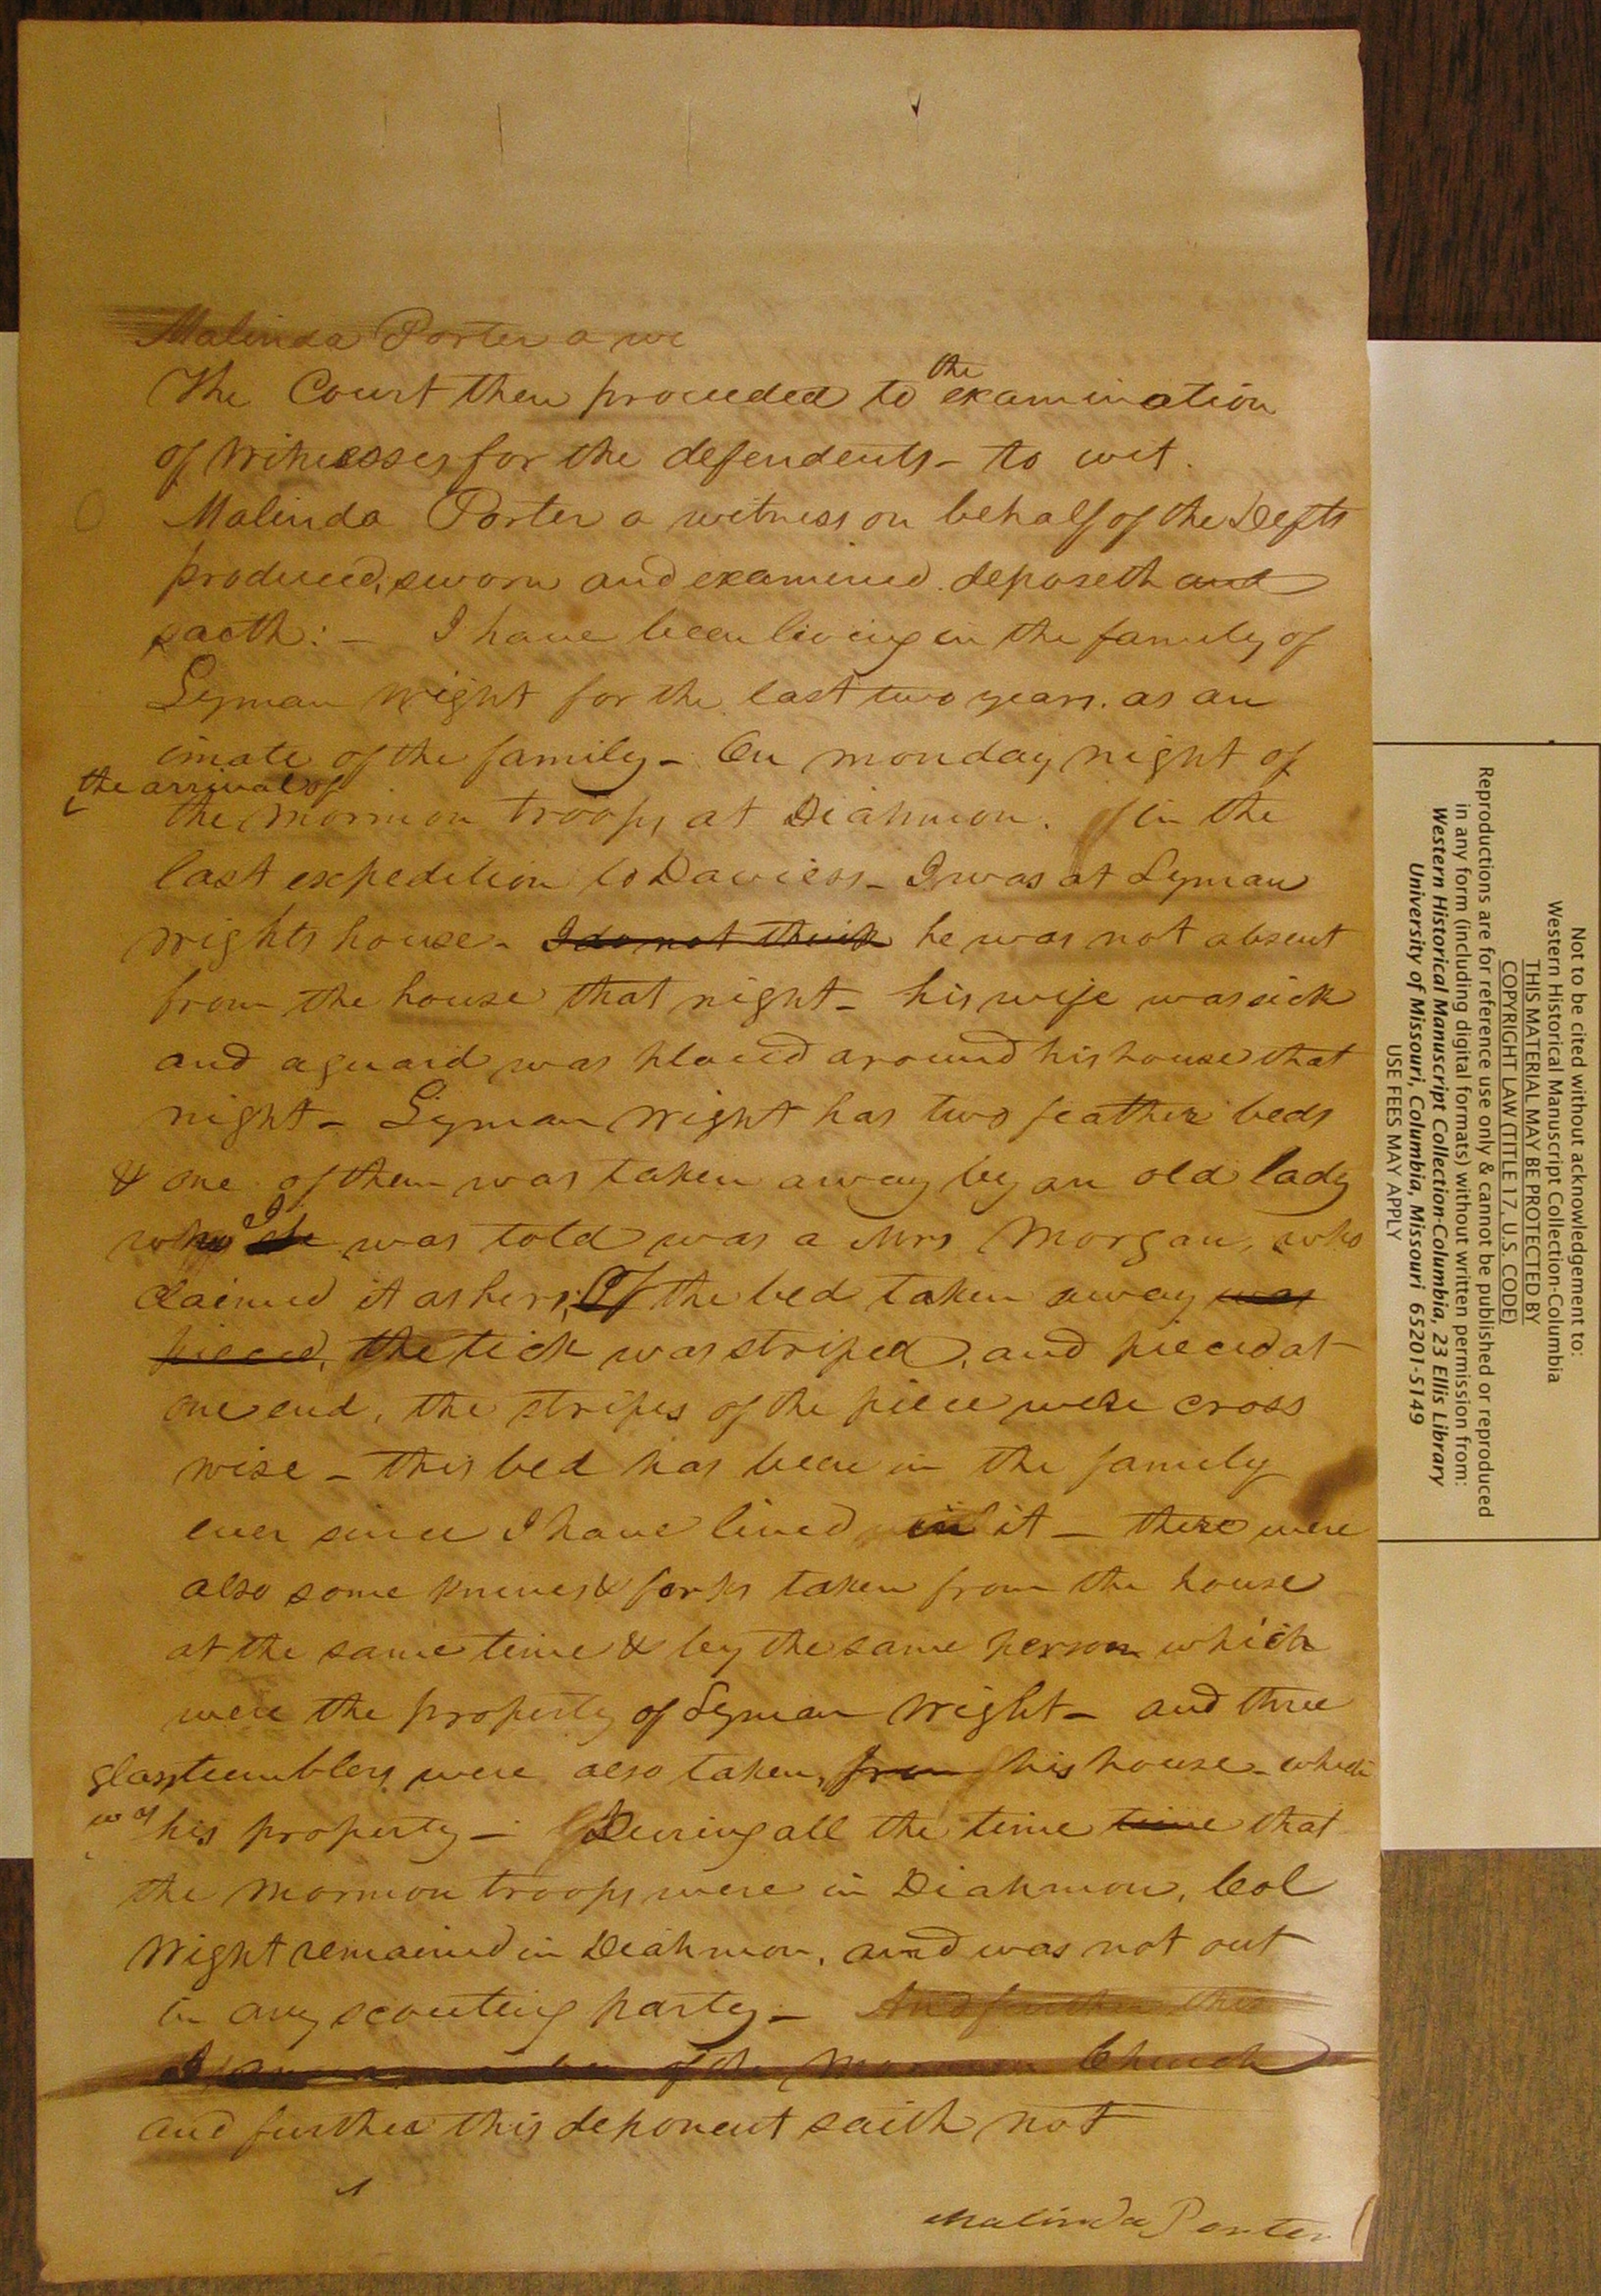 Malinda Porter a wi
The Court then proceeded to the examination
of witnesses for the defendents - to wit.
Malinda Porter a witness on behalf of the Defts
produced, sworn and examined. deposeth and
saoth: - I have been living in the family of
Lyman Wight for the last two years. as an
imate of the family - On monday night of
the arrival of
the Mormon troops at Diahmon. in the
last expedition to Daviess - I was at Lyman
Wights house - I do not think he was not absent
from the house that night - his wife was sick
and a guard was placed around his house that
night - Lyman Wight has two feather beds
& one of them was taken away by an old lady
who I was told was a Mrs Morgan, who
claimed it as hers; Of the bed taken away was
pieced, the tick was striped, and pieced at
one end, the stripes of the piece were cross
wise - this bed has been in the family
ever since I have lived in it - there were
also some knives & forks taken from the house
at the same time & by the same person which
were the property of Lyman Wight - and three
glass tumblers were also taken, from his house - which
was his property - During all the time time that
the Mormon troops were in Diahmon, Col
Wight remained in Diahmon, and was not out
in any scouting party - And further this
I am a member of the Mormon Church
and further this deponent saith not
Malinda Porter
Not to be cited without acknowledgement to:
Western Historical Manuscript Collection-Columbia
THIS MATERIAL MAY BE PROTECTED BY
COPYRIGHT LAW (TITLE 17, U.S. CODE)
Reproductions are for reference use only & cannot be published or reproduced
in any form (including digital formats) without written permission from:
Western Historical Manuscript Collection-Columbia, 23 Ellis Library
University of Missouri, Columbia, Missouri 65201-5149
USE FEES MAY APPLY